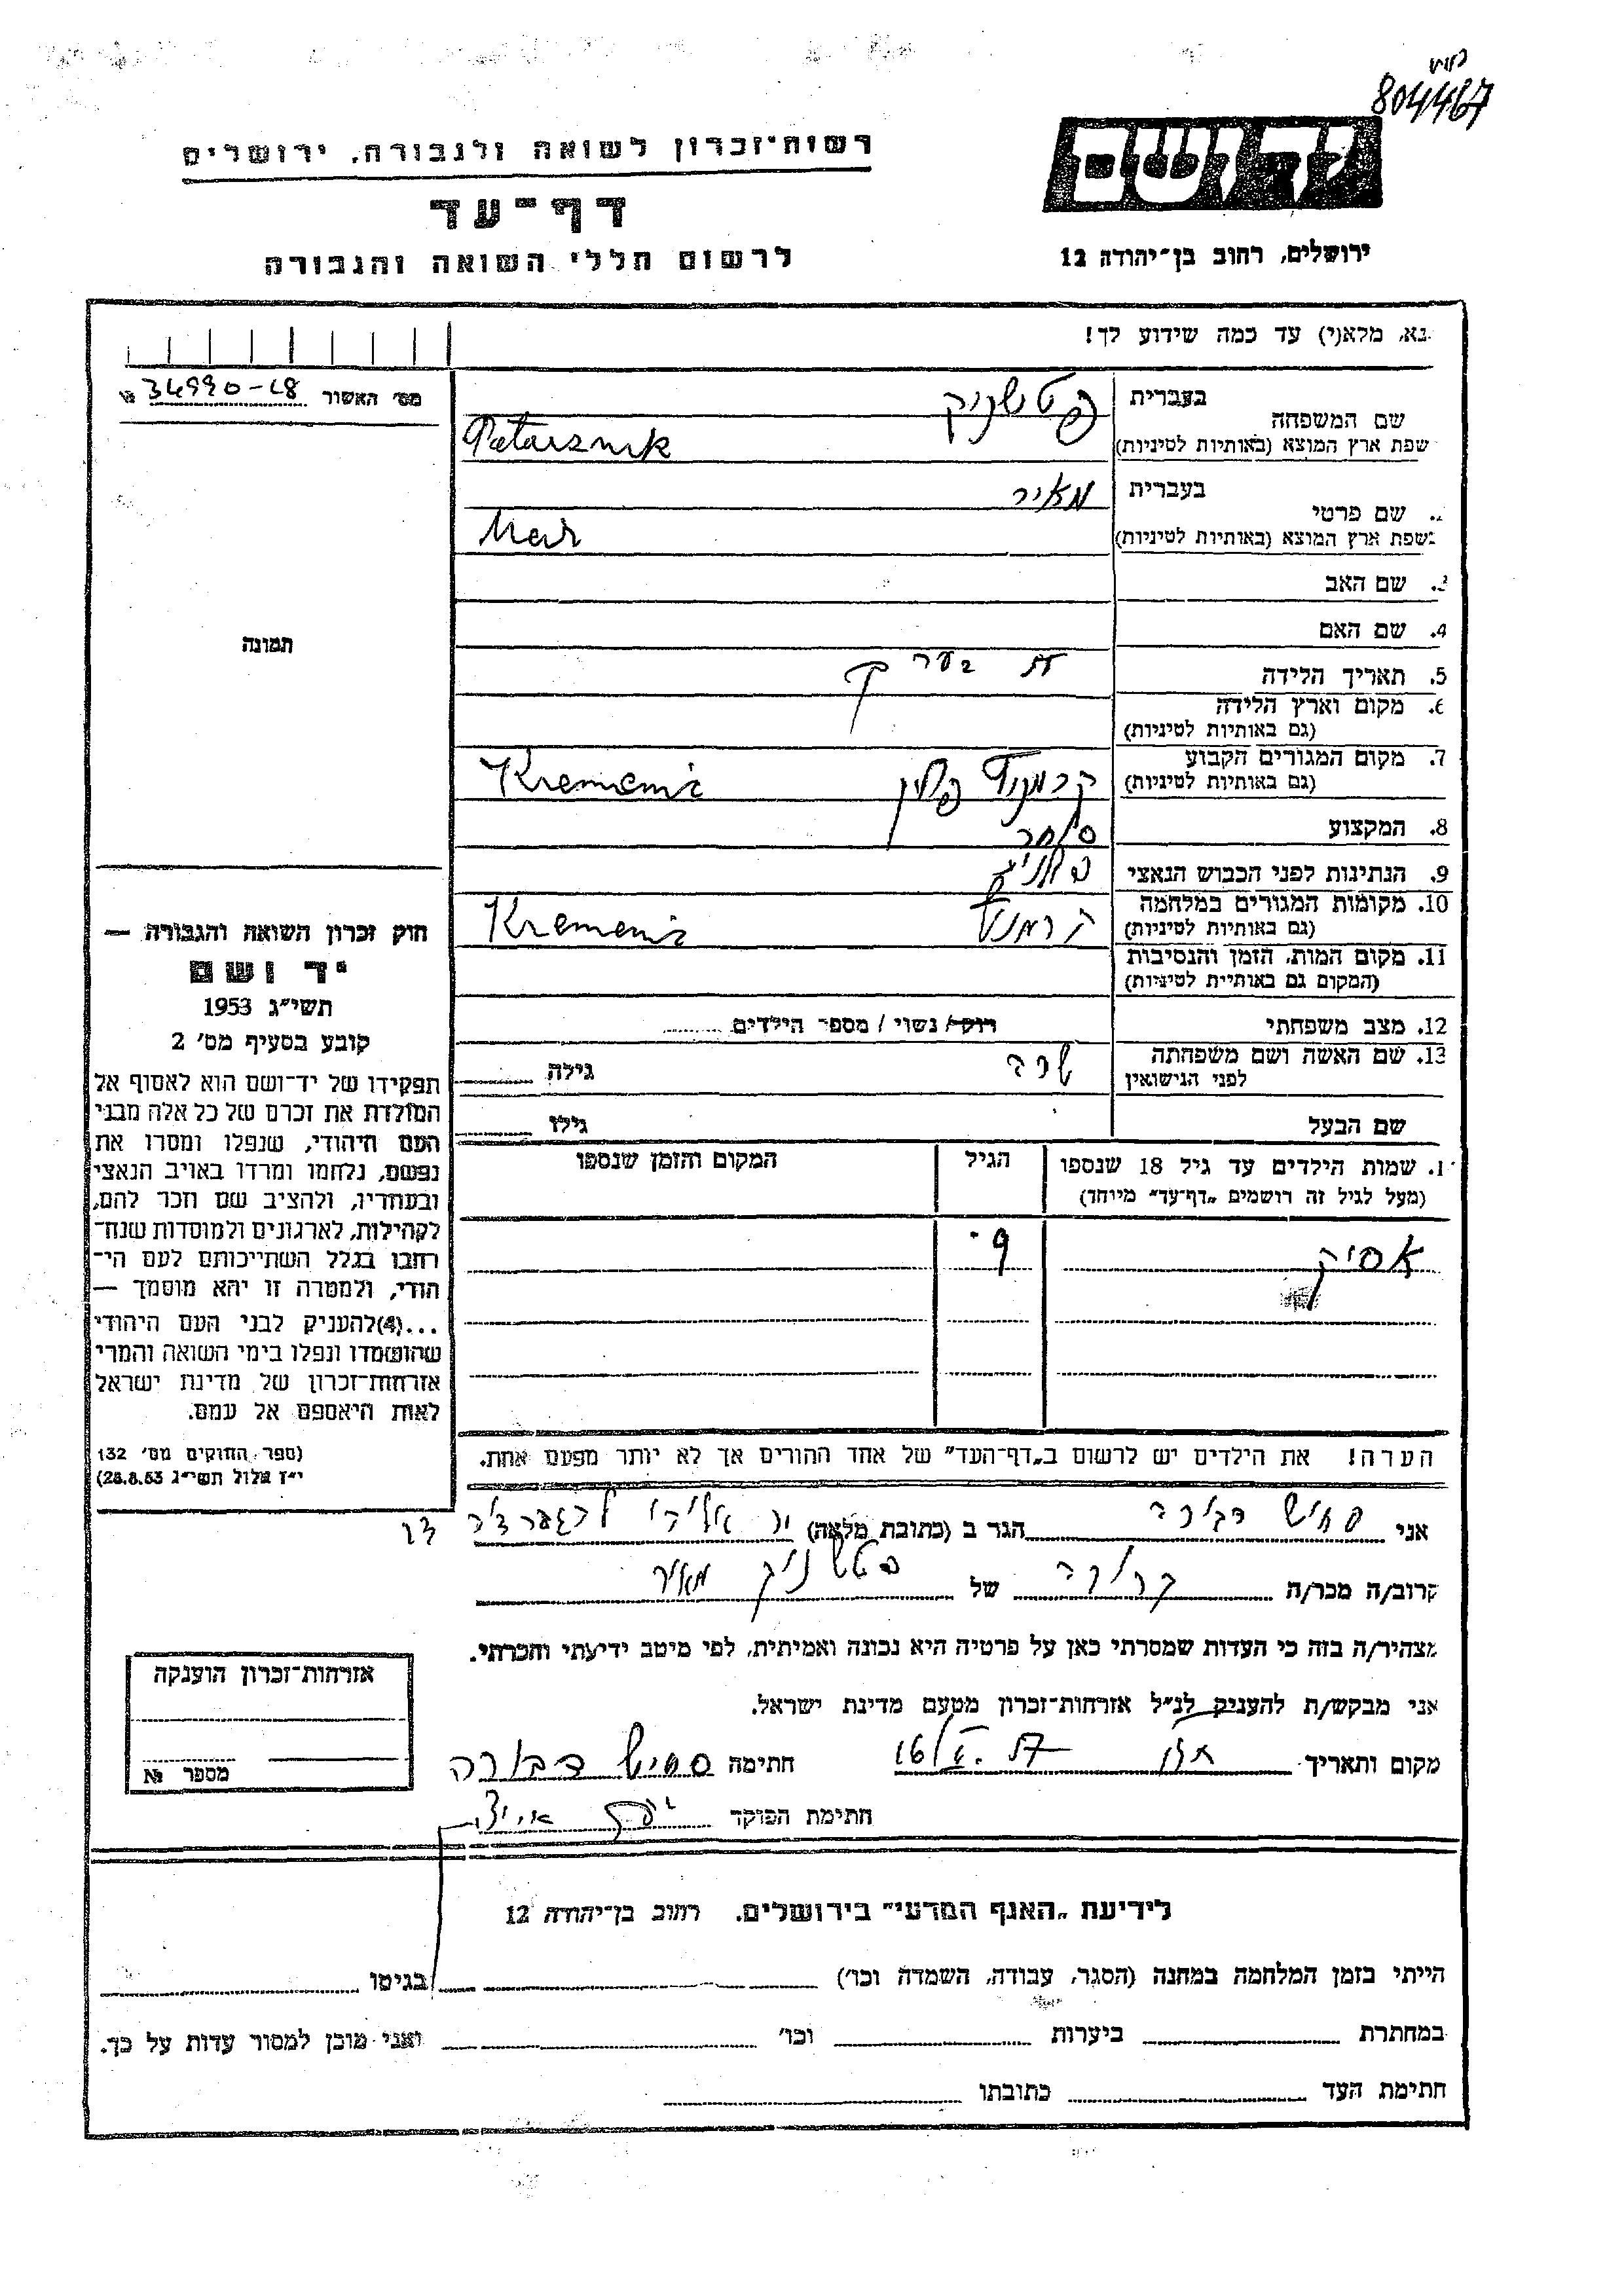 804467
רשות־זכרון לשואה ולגבורה, ירושלים
יד ושם
דף־עד
לרשום חללי השואה והגבורה
ירושלים, רחוב בן־יהודה 12
נא, מלא(י) עד כמה שידוע לך!
מס׳ האשור 34990-48 №
שם המשפחה
בעברית
שפת ארץ המוצא (באותיות לטיניות)
Patarsznik
שם פרטי
בעברית מאיר
שפת ארץ המוצא (באותיות לטיניות)
Meir
תמונה
3. שם האב
4. שם האם
5. תאריך הלידה
6. מקום וארץ הלידה
(גם באותיות לטיניות)
7. מקום המגורים הקבוע
(גם באותיות לטיניות)
Kremeniz
8. המקצוע סוחר
9. הנתינות לפני הכבוש הנאצי
10. מקומות המגורים במלחמה
(גם באותיות לטיניות)
Kremeniz
11. מקום המות, הזמן והנסיבות
(המקום גם באותיית לטיניות)
12. מצב משפחתי רווק / נשוי / מספר הילדים
13. שם האשה ושם משפחתה
לפני הנישואין
שרה גילה
שם הבעל גילו
שמות הילדים עד גיל 18 שנספו הגיל המקום והזמן שנספו
(מעל לגיל זה רושמים „דף־עד” מיוחד)
אסיק 9
הערה! את הילדים יש לרשום ב„דף־העד” של אחד ההורים אך לא יותר מפעם אחת.
חוק זכרון השואה והגבורה —
יד ושם
תשי״ג 1953
קובע בסעיף מס׳ 2
תפקידו של יד־ושם הוא לאסוף אל
המולדת את זכרם של כל אלה מבני
העם היהודי, שנפלו ומסרו את
נפשם, נלחמו ומרדו באויב הנאצי
ובעוזריו, ולהציב שם וזכר להם,
לקהילות, לארגונים ולמוסדות שנח־
רבו בגלל השתייכותם לעם הי־
הודי, ולמטרה זו יהא מוסמך —
...(4)להעניק לבני העם היהודי
שהושמדו ונפלו בימי השואה והמרי
אזרחות־זכרון של מדינת ישראל
לאות היאספם אל עמם.
(ספר החוקים מס׳ 132
י״ז אלול תשי״ג 28.8.53)
אני דבורה הגר ב (כתובת מלאה)
קרוב/ה מכר/ה קרובה של מאיר
מצהיר/ה בזה כי העדות שמסרתי כאן על פרטיה היא נכונה ואמיתית, לפי מיטב ידיעתי והכרתי.
אני מבקש/ת להעניק לנ״ל אזרחות־זכרון מטעם מדינת ישראל.
מקום ותאריך חתימה דבורה
חתימת הפוקד
אזרחות־זכרון הוענקה
מספר №
לידיעת „האגף המדעי” בירושלים, רחוב בן־יהודה 12
הייתי בזמן המלחמה במחנה (הסגר, עבודה, השמדה וכו׳) בגיטו
במחתרת ביערות וכו׳ ואני מוכן למסור עדות על כך.
חתימת העד כתובתו